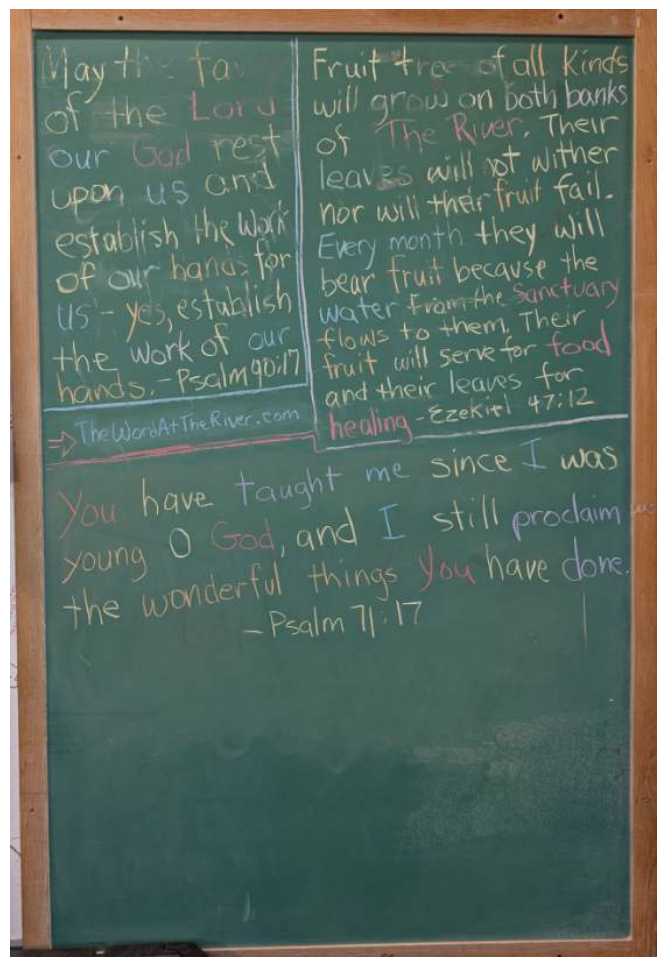 May the fa
of the Lord
our God rest
upon us and
establish the work
of our hands for
us - yes, establish
the work of our
hands. - Psalm 90:17
Fruit tre of all kinds
will grow on both banks
of The River. Their
leaves will not wither
nor will their fruit fail.
Every month they will
bear fruit because the
water from the Sanctuary
flows to them. Their
fruit will serve for food
and their leaves for
healing - Ezekiel 47:12
⇒ TheWordAtTheRiver.com
You have taught me since I was
young O God, and I still proclaim
the wonderful things You have done.
- Psalm 71:17